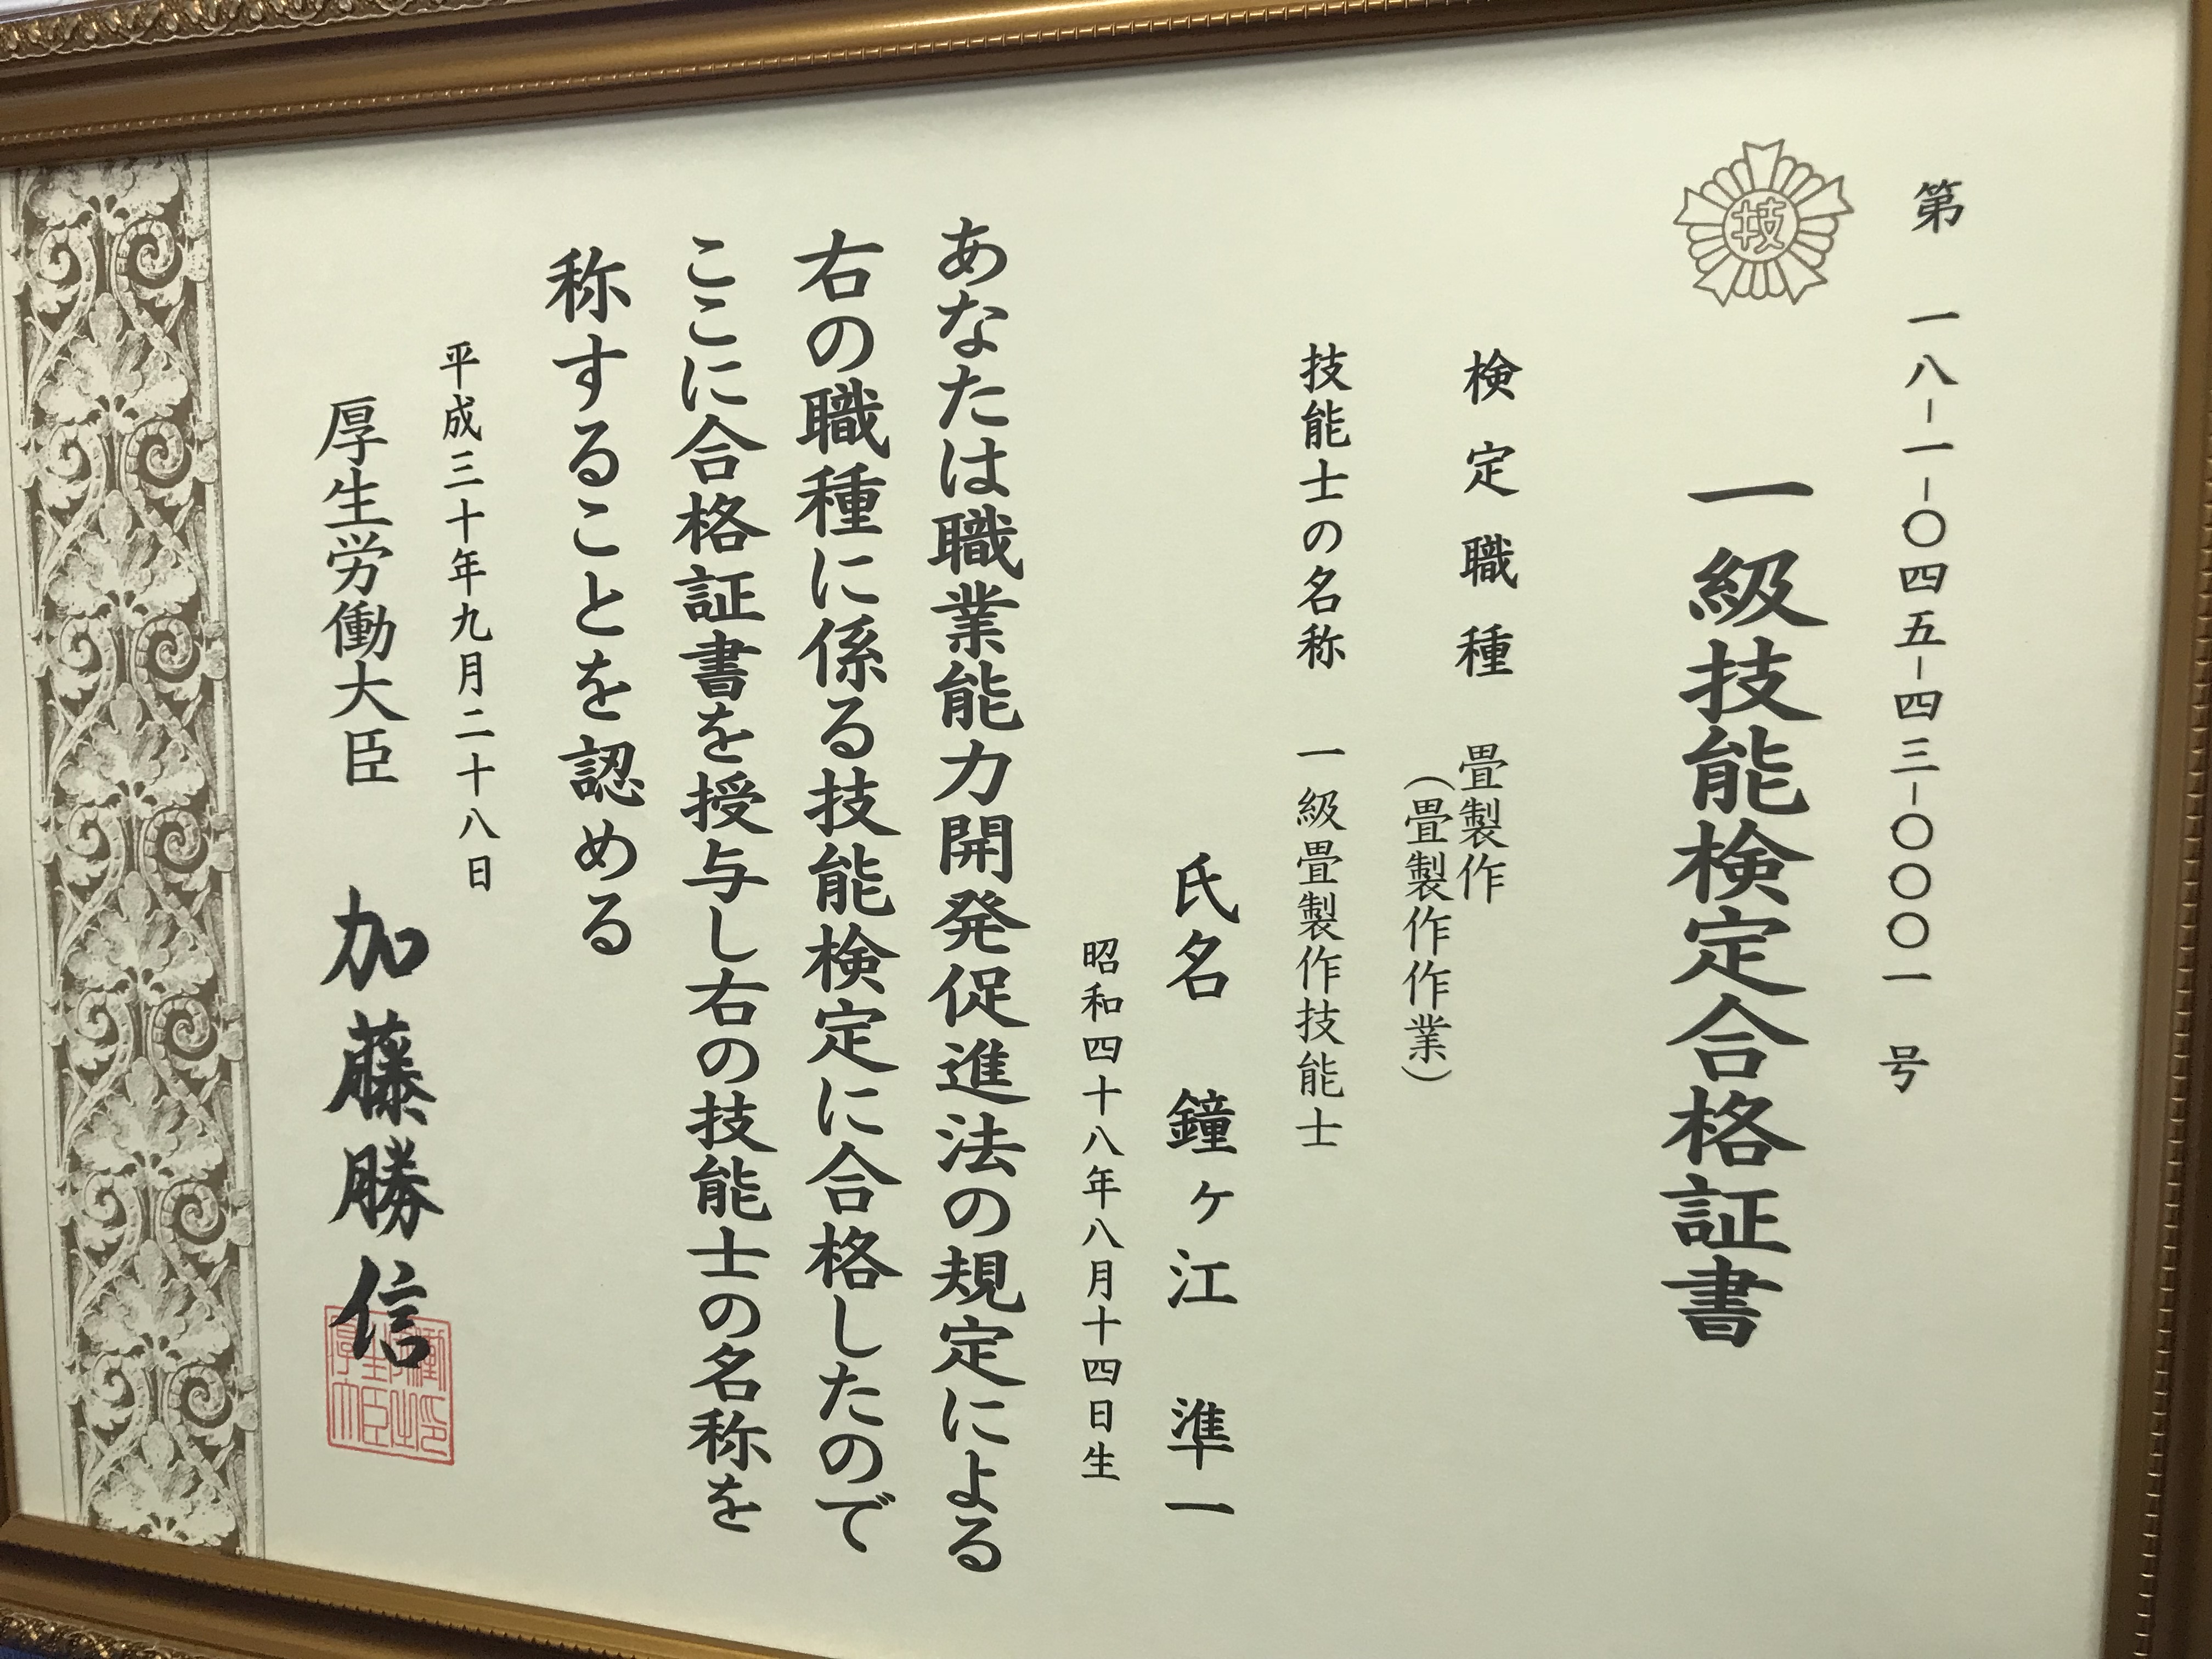 第 一八-一-〇四五-四三-〇〇〇一 号
技
一級技能検定合格証書
検定職種 畳製作
(畳製作作業)
技能士の名称 一級畳製作技能士
氏名 鐘ヶ江 準一
昭和四十八年八月十四日生
あなたは職業能力開発促進法の規定による
右の職種に係る技能検定に合格したので
ここに合格証書を授与し右の技能士の名称を
称することを認める
平成三十年九月二十八日
厚生労働大臣 加藤勝信